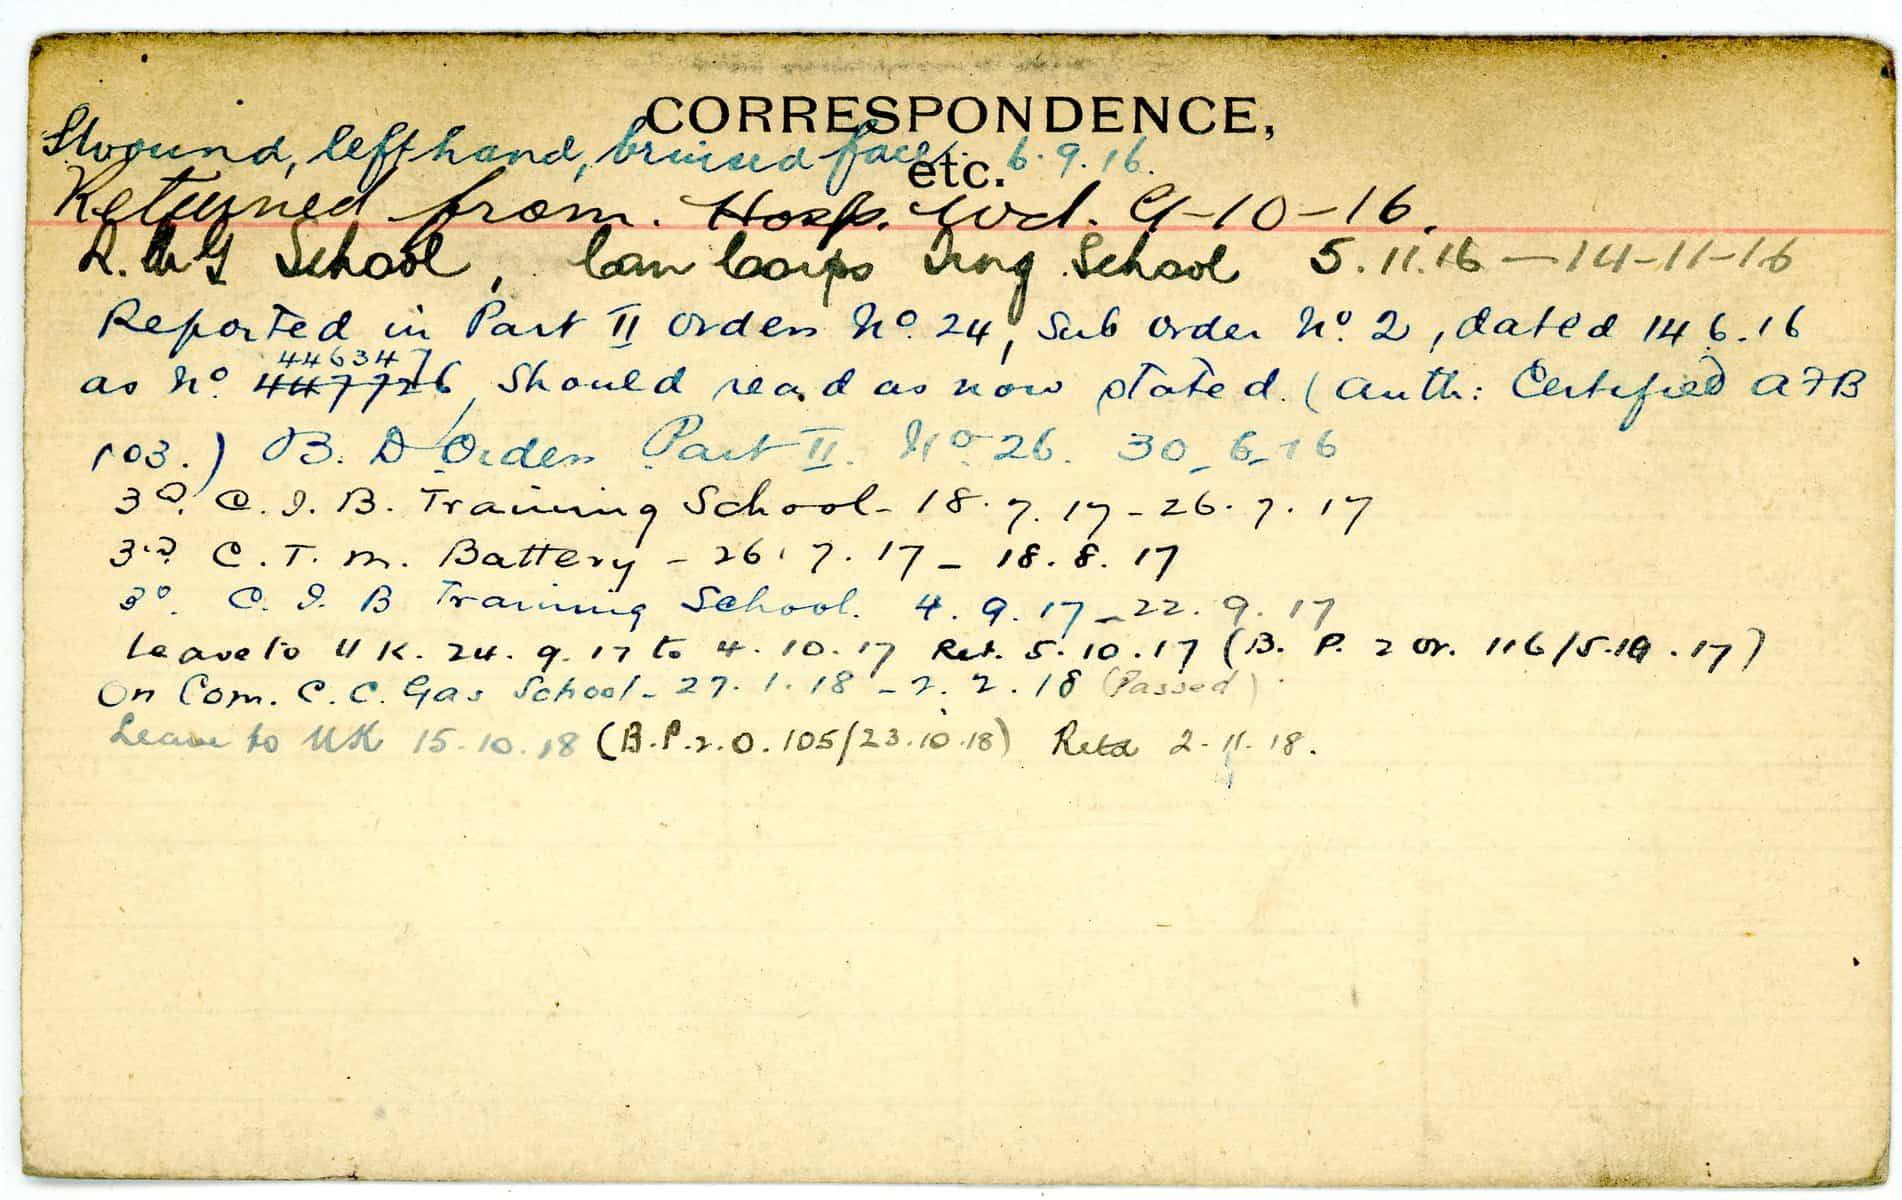 CORRESPONDENCE,
S/wound, left hand, bruised face. 6.9.16.
etc.
Returned from. Hosp. Wd. 9-10-16.
L. M G School, Can Corps Trng School 5.11.16 — 14-11-16
Reported in Part II Orders No. 24, Sub Order No. 2, dated 14 6.16
446347
as No. 447726, Should read as now stated. (Auth: Certified AFB
103.) B. D Orders Part II. No 26. 30-6-16
3rd. C. I. B. Training School - 18.7.17 - 26.7.17
3rd C. T. M. Battery - 26.7.17 - 18.8.17
3rd. C. I. B Training School. 4.9.17 - 22.9.17
Leave to U K. 24.9.17 to 4.10.17 Ret. 5.10.17 (B. P. 2 Or. 116/5.10.17)
On Com. C. C. Gas School - 27.1.18 - 2.2.18 (Passed)
Leave to UK 15.10.18 (B.P.2.O. 105/23.10.18) Retd 2.11.18.